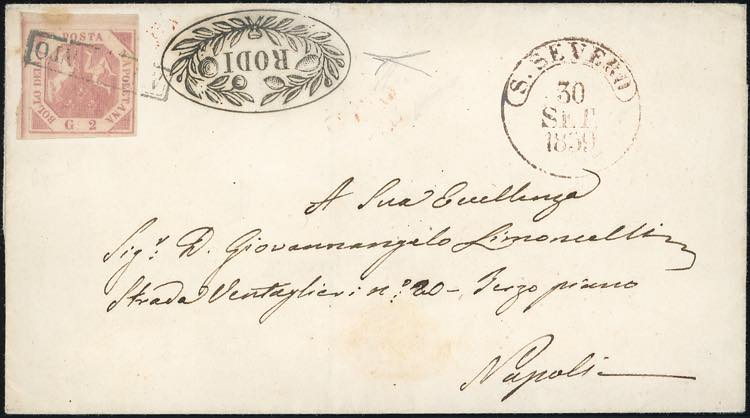 POSTA
NAPOLETANA
BOLLO DELLA
G. 2
RODI
S. SEVERO
30
SET
1859
A Sua Eccellenza
Sigr. D. Giovannangelo Limoncelli
Strada Ventaglieri no. 20 – Terzo piano
Napoli